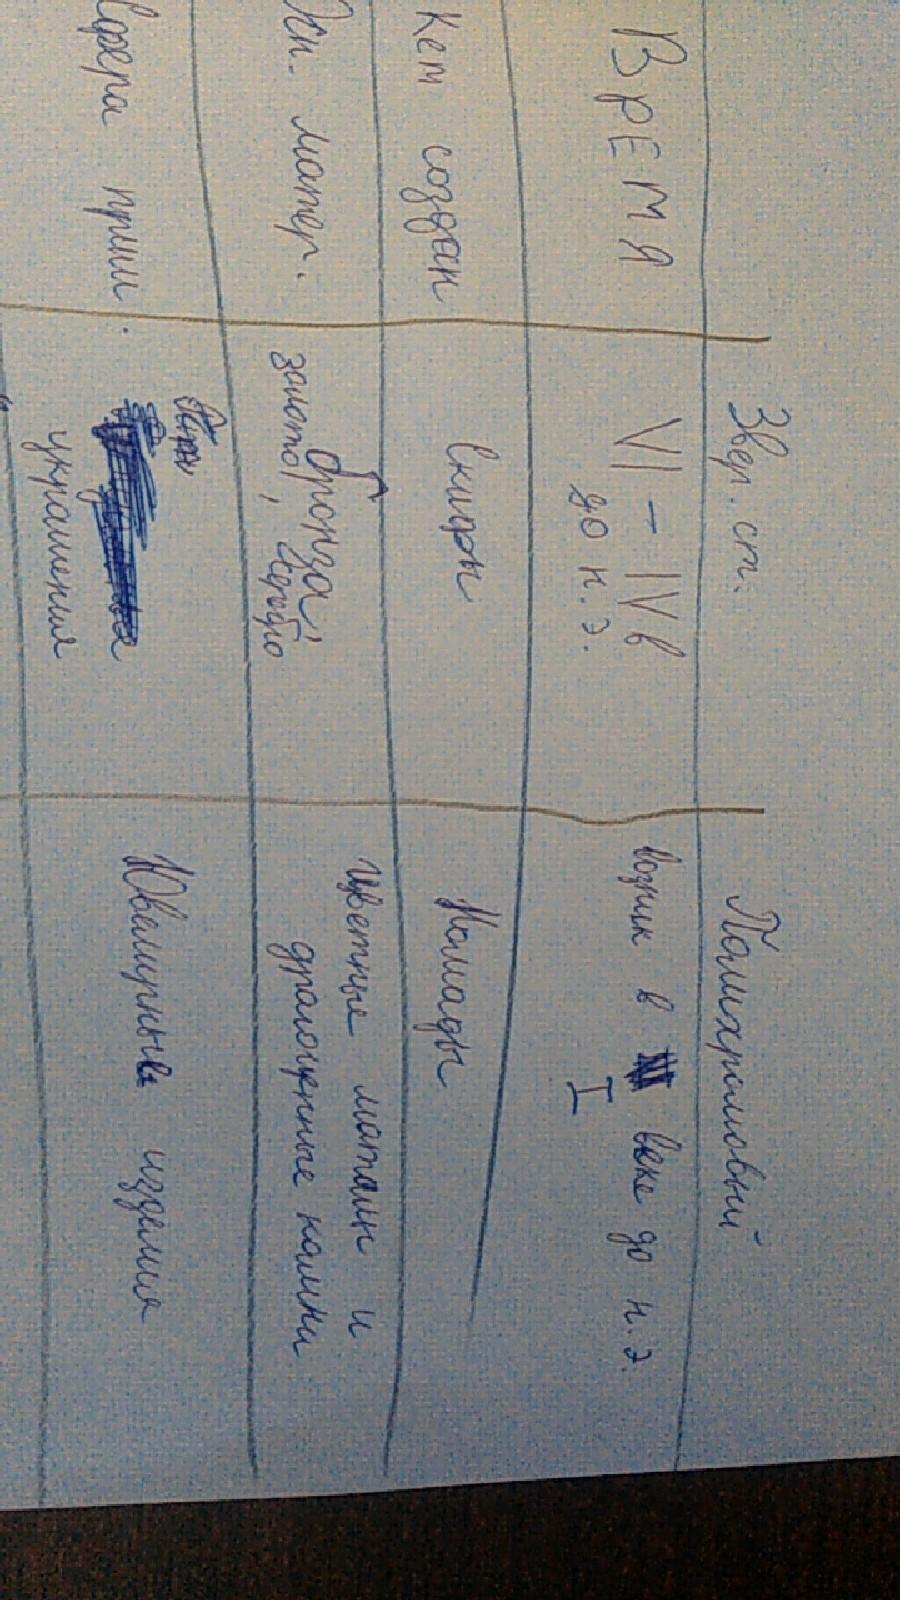 Звер. ст. Полихромовый
ВРЕМЯ VI - IVв возник в веке до н.э.
до н.э. I
Кем создан Скифы Номады
Осн. матер. бронза, цветные маталы и
золото, серебро драгоценные камни
Сфера прим. Ювелирные изделия
украшения